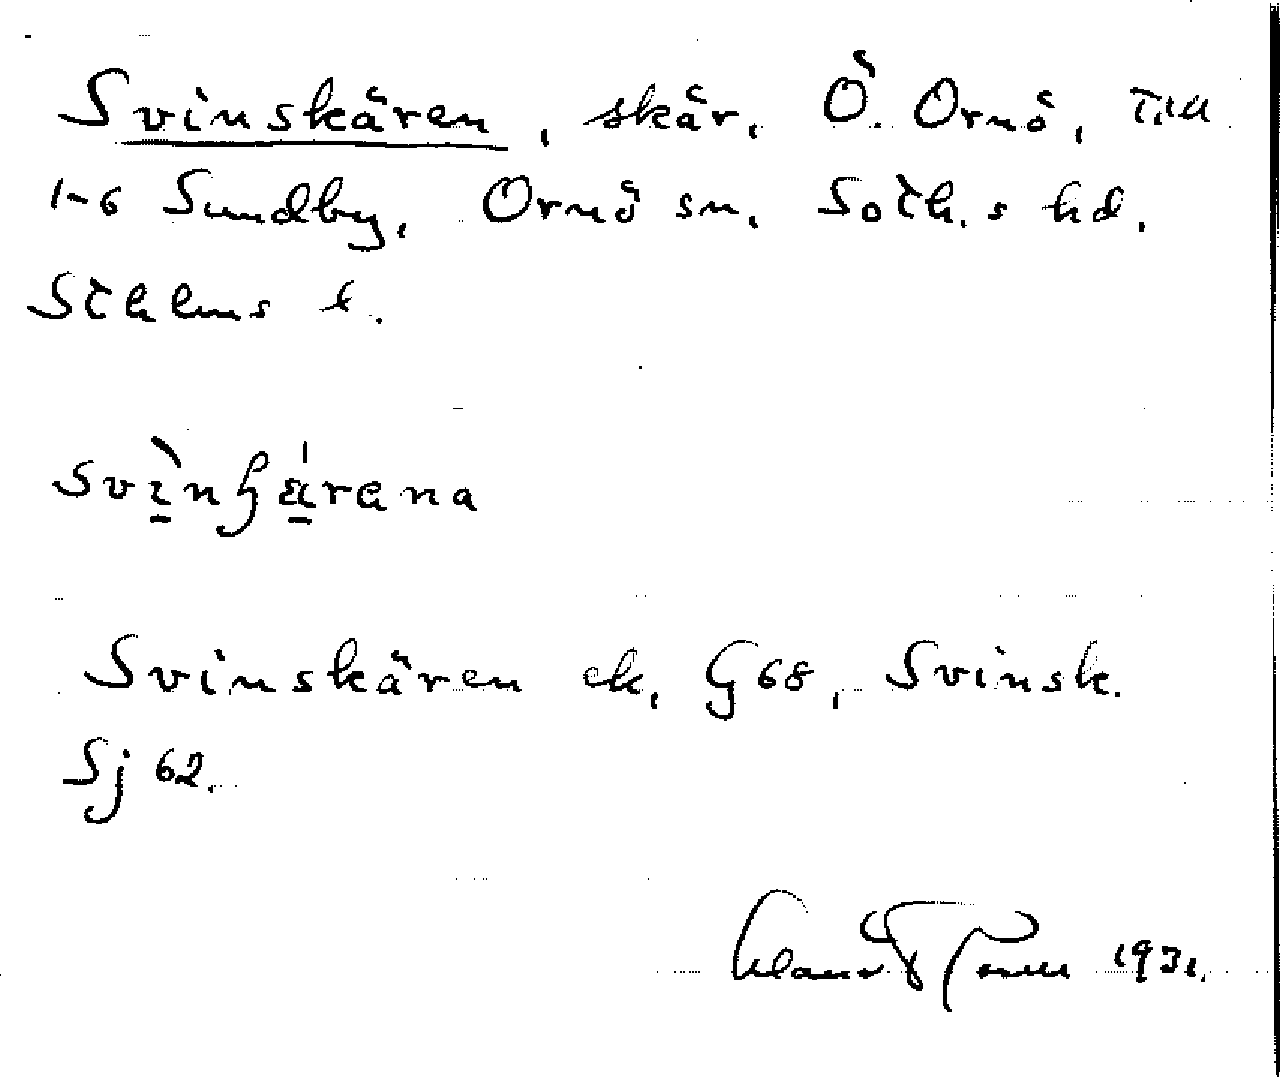 Svinskären, skär, Ö. Ornö, Till
1-6 Sundby, Ornö sn, Soth.s hd,
Sthlms l.
Svinskären ek, G68, Svinsk.
Sj 62.
1931.